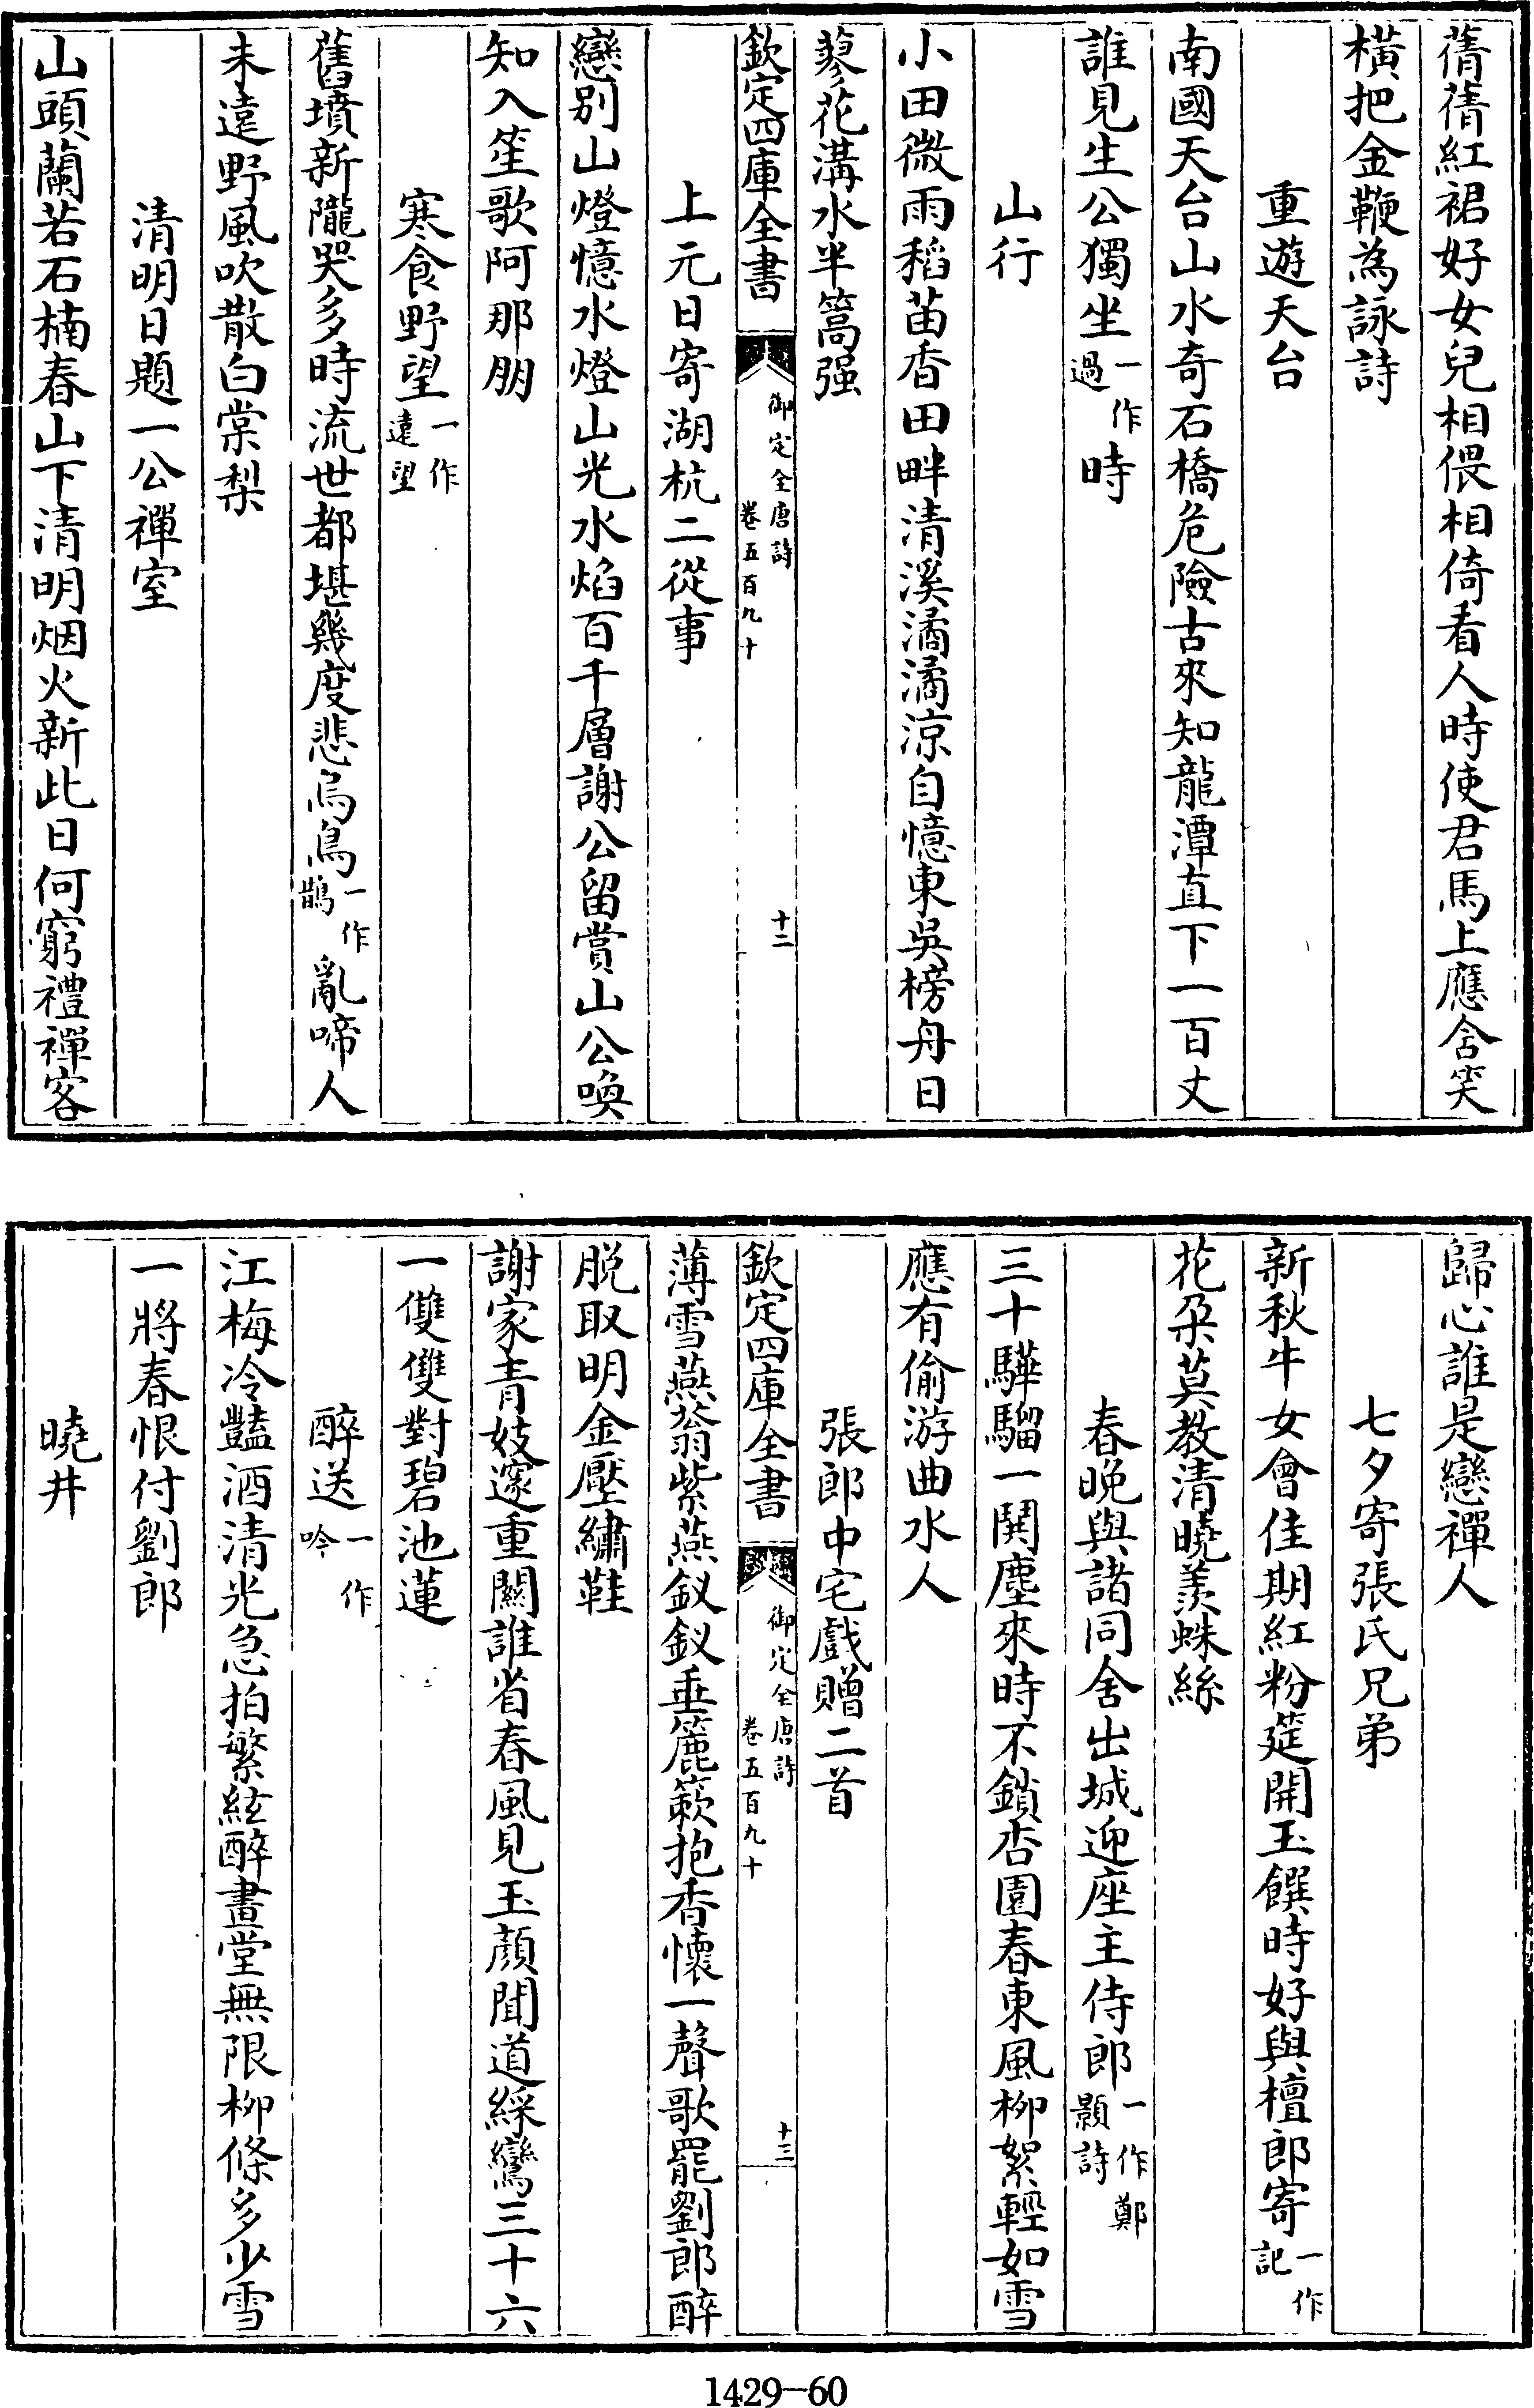 蒨蒨紅裙好女兒相偎相倚看人時使君馬上應含笑
横把金鞭為詠詩
重遊天台
南國天台山水奇石橋危險古來知龍潭直下一百丈
誰見生公獨坐一作過時
山行
小田微雨稻苗香田畔清溪潏潏涼自憶東吳榜舟日
蓼花溝水半篙强
欽定四庫全書 御定全唐詩 卷五百九十 十二
上元日寄湖杭二從事
戀别山燈憶水燈山光水焰百千層謝公留賞山公喚
知入笙歌阿那朋
寒食野望一作遠望
舊墳新隴哭多時流世都堪幾度悲烏鳥一作鵲亂啼人
未遠野風吹散白棠梨
清明日題一公禪室
山頭蘭若石楠春山下清明烟火新此日何窮禮禪客
歸心誰是戀禪人
七夕寄張氏兄弟
新秋牛女會佳期紅粉筵開玉饌時好與檀郎寄一作記
花朶莫教清曉羨蛛絲
春晚與諸同舍出城迎座主侍郎一作鄭顥詩
三十驊騮一鬨塵來時不鎖杏園春東風柳絮輕如雪
應有偷游曲水人
張郎中宅戲贈二首
欽定四庫全書 御定全唐詩 卷五百九十 十三
薄雪燕蓊紫燕釵釵垂簏簌抱香懷一聲歌罷劉郎醉
脱取明金壓繡鞋
謝家青妓邃重關誰省春風見玉顔聞道綵鸞三十六
一雙雙對碧池蓮
醉送一作吟
江梅冷豔酒清光急拍繁絃醉畫堂無限柳條多少雪
一將春恨付劉郎
曉井
1429—60